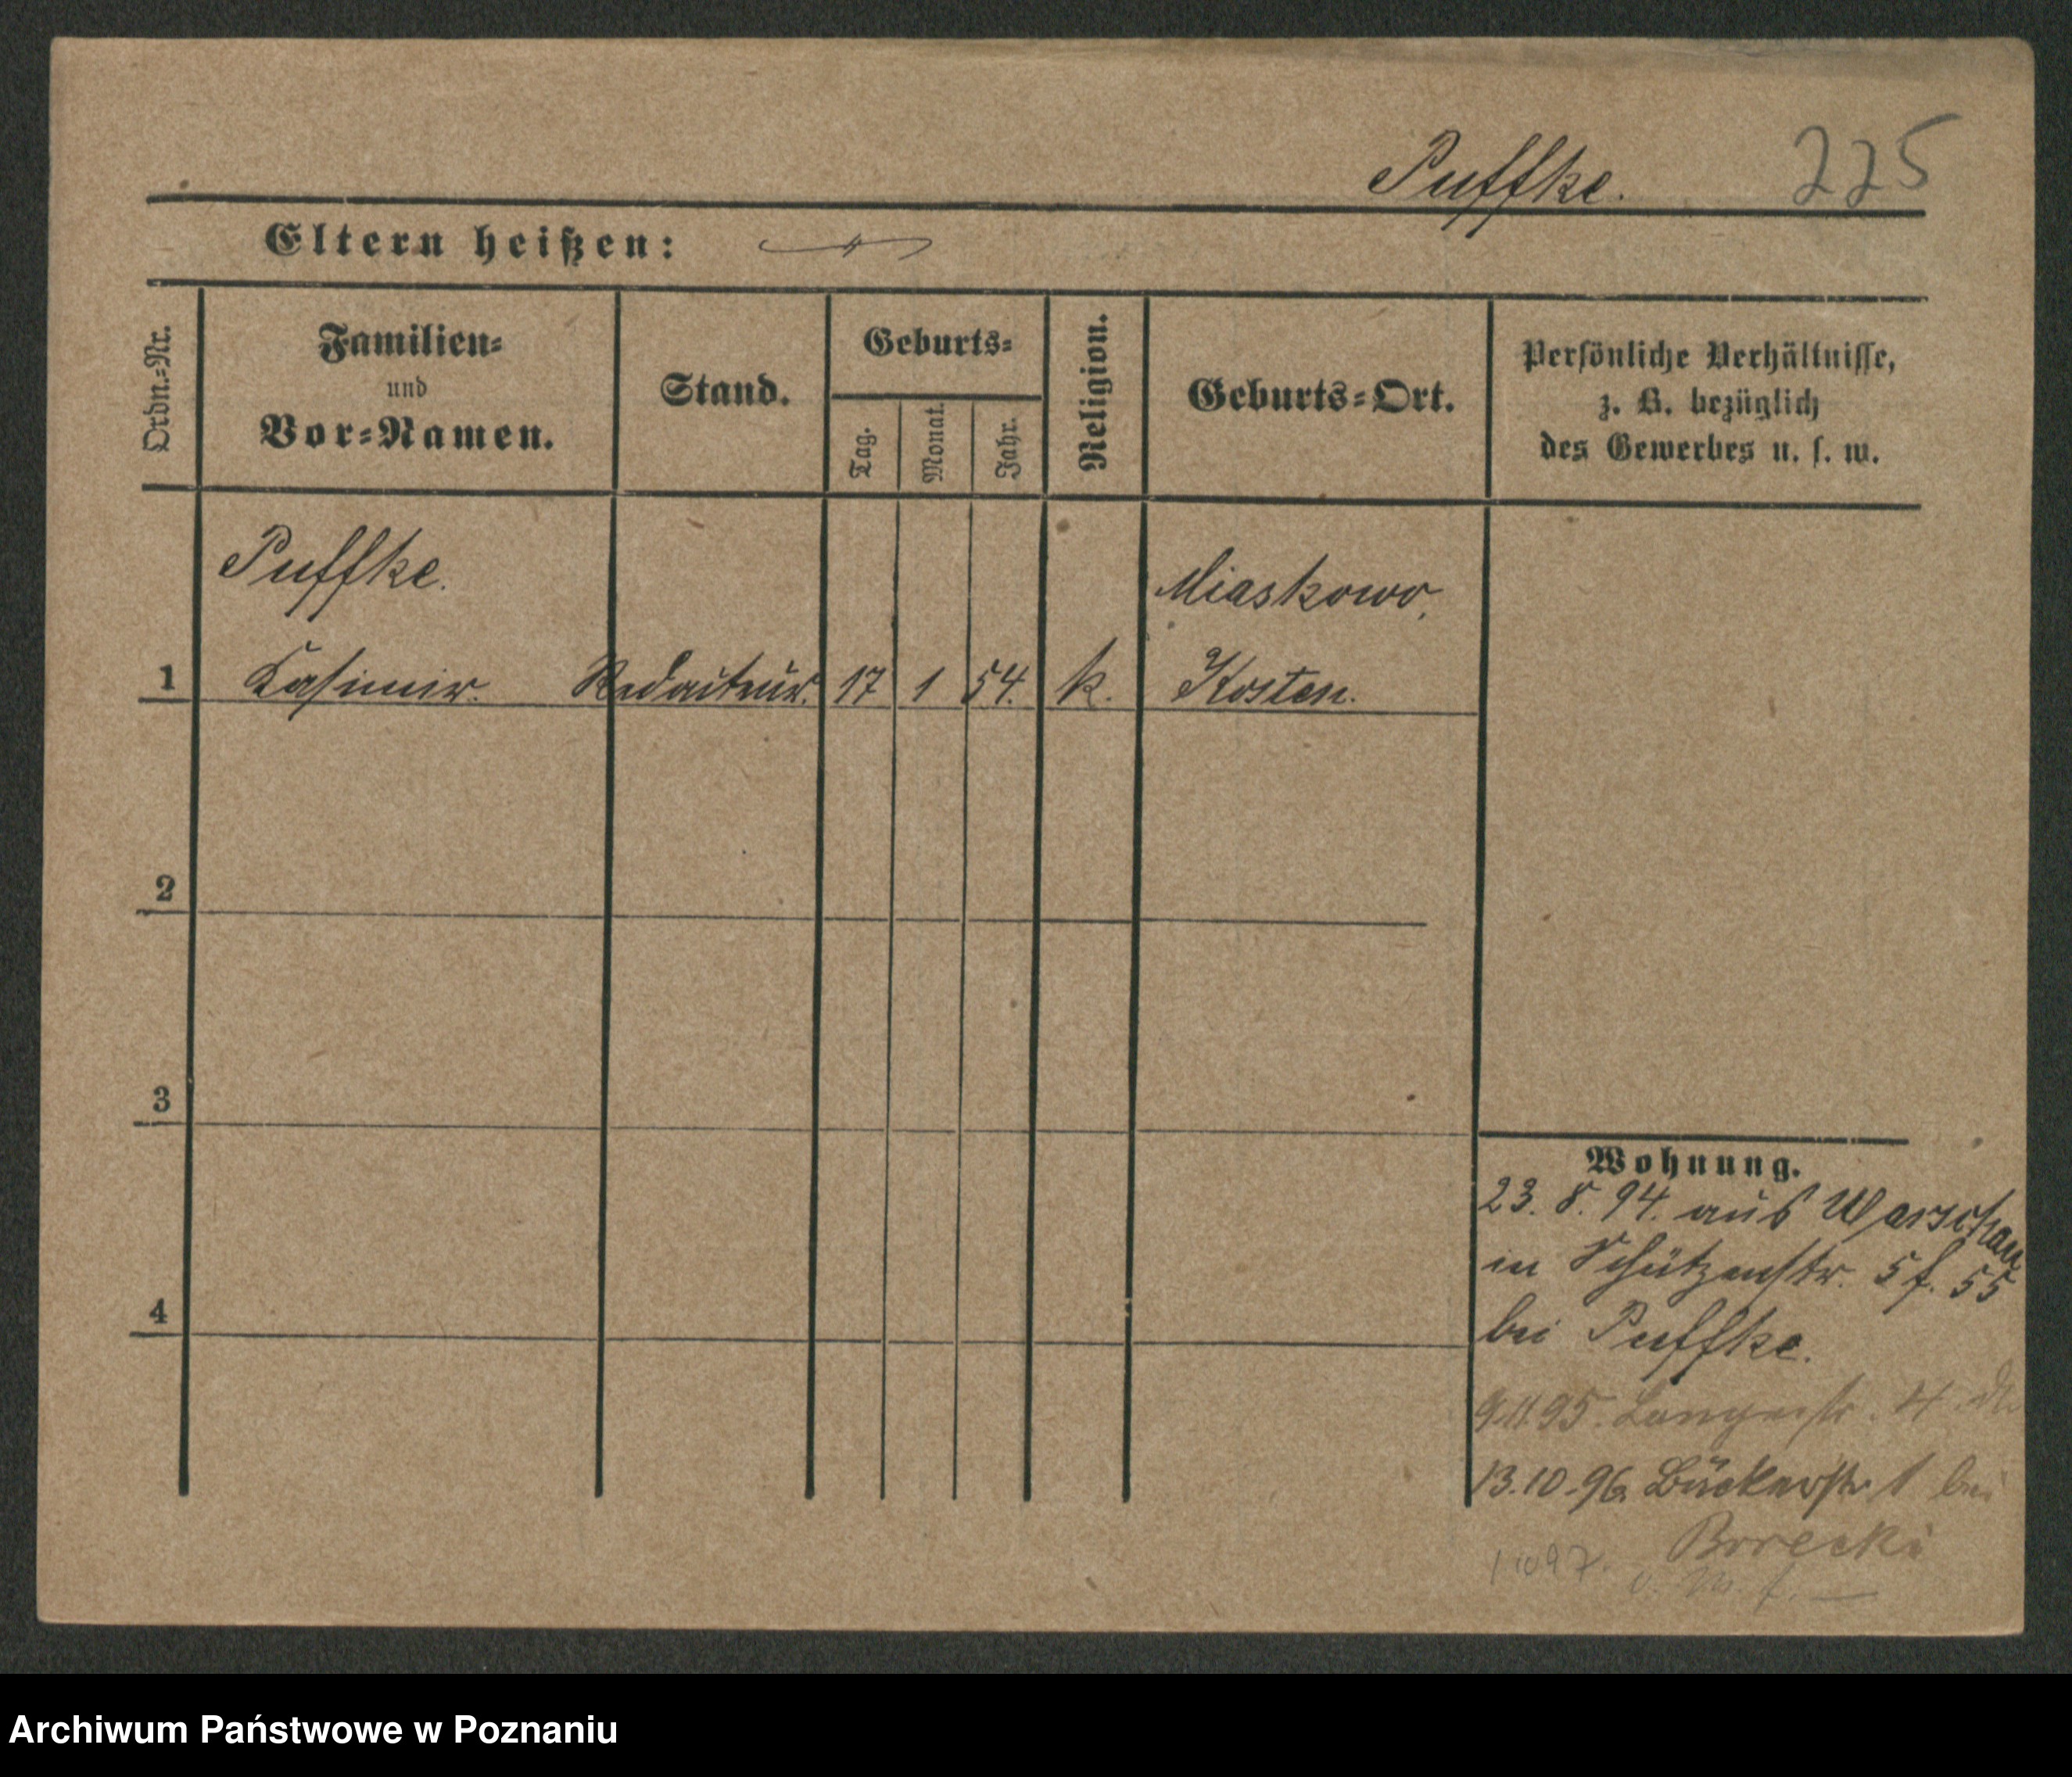 Puffke. 225
Eltern heißen:
Ordn.=Nr.
Familien=
und
Vor=Namen.
Stand.
Geburts=
Tag.
Monat.
Jahr.
Religion.
Geburts=Ort.
Persönliche Verhältnisse,
z. B. bezüglich
des Gewerbes u. s. w.
Puffke.
Miaskowo,
1 Kasimir. Redacteur. 17 1 54. k. Kosten.
2
3
4
Wohnung.
23. 8. 94. aus Warschau
in Schützenstr. 5 f. 55
bei Puffke.
9.11.95. Langestr. 4
13.10.96. Bäckerstr 1 bei
Borecki
Archiwum Państwowe w Poznaniu